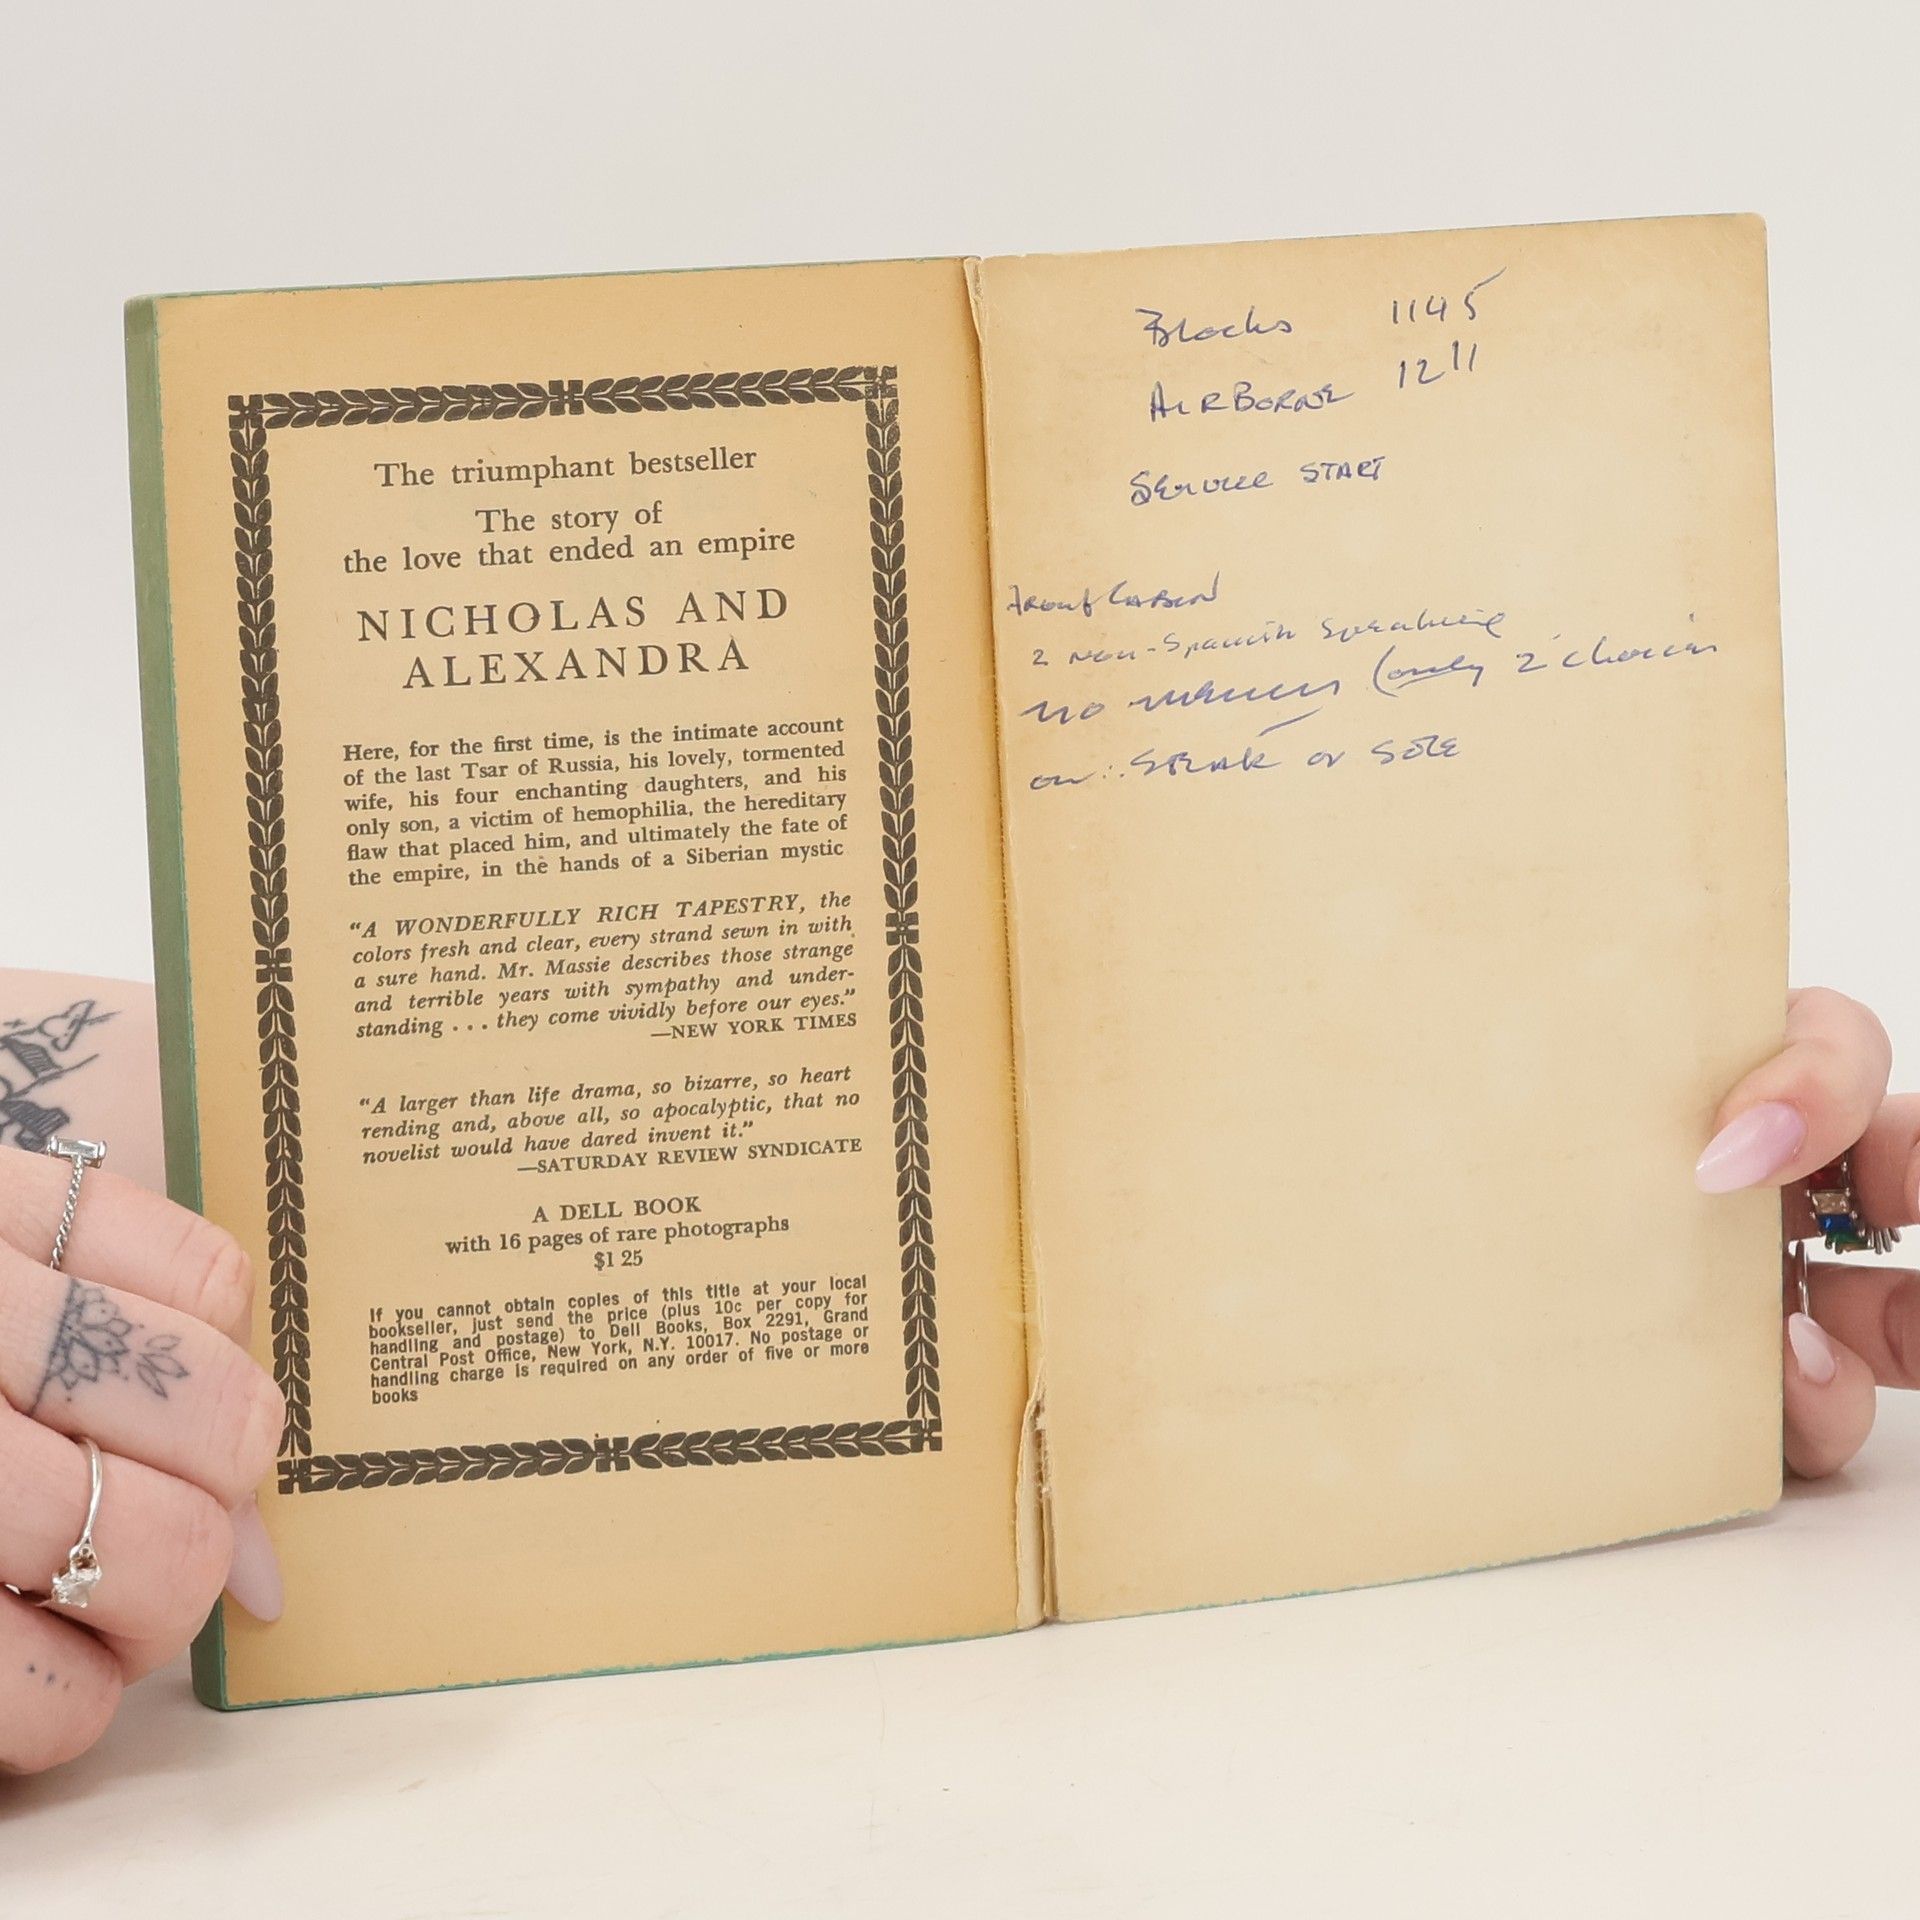 The triumphant bestseller
The story of
the love that ended an empire
NICHOLAS AND
ALEXANDRA
Here, for the first time, is the intimate account
of the last Tsar of Russia, his lovely, tormented
wife, his four enchanting daughters, and his
only son, a victim of hemophilia, the hereditary
flaw that placed him, and ultimately the fate of
the empire, in the hands of a Siberian mystic
“A WONDERFULLY RICH TAPESTRY, the
colors fresh and clear, every strand sewn in with
a sure hand. Mr. Massie describes those strange
and terrible years with sympathy and under-
standing . . . they come vividly before our eyes.”
—NEW YORK TIMES
“A larger than life drama, so bizarre, so heart
rending and, above all, so apocalyptic, that no
novelist would have dared invent it.”
—SATURDAY REVIEW SYNDICATE
A DELL BOOK
with 16 pages of rare photographs
$1 25
If you cannot obtain copies of this title at your local
bookseller, just send the price (plus 10c per copy for
handling and postage) to Dell Books, Box 2291, Grand
Central Post Office, New York, N.Y. 10017. No postage or
handling charge is required on any order of five or more
books
Blocks 1145
AIRBORNE 1211
Service START
Front CABIN
2 Non-Spanish Speaking
no menus (only 2 choices
on: STEAK or SOLE